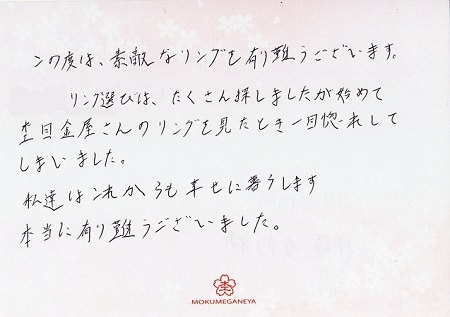 この度は、素敵なリングを有り難うございます。
リング選びは、たくさん探しましたが始めて
杢目金屋さんのリングを見たとき一目惚れして
しまいました。
私達はこれからも幸せに暮らします
本当に有り難うございました。
MOKUMEGANEYA